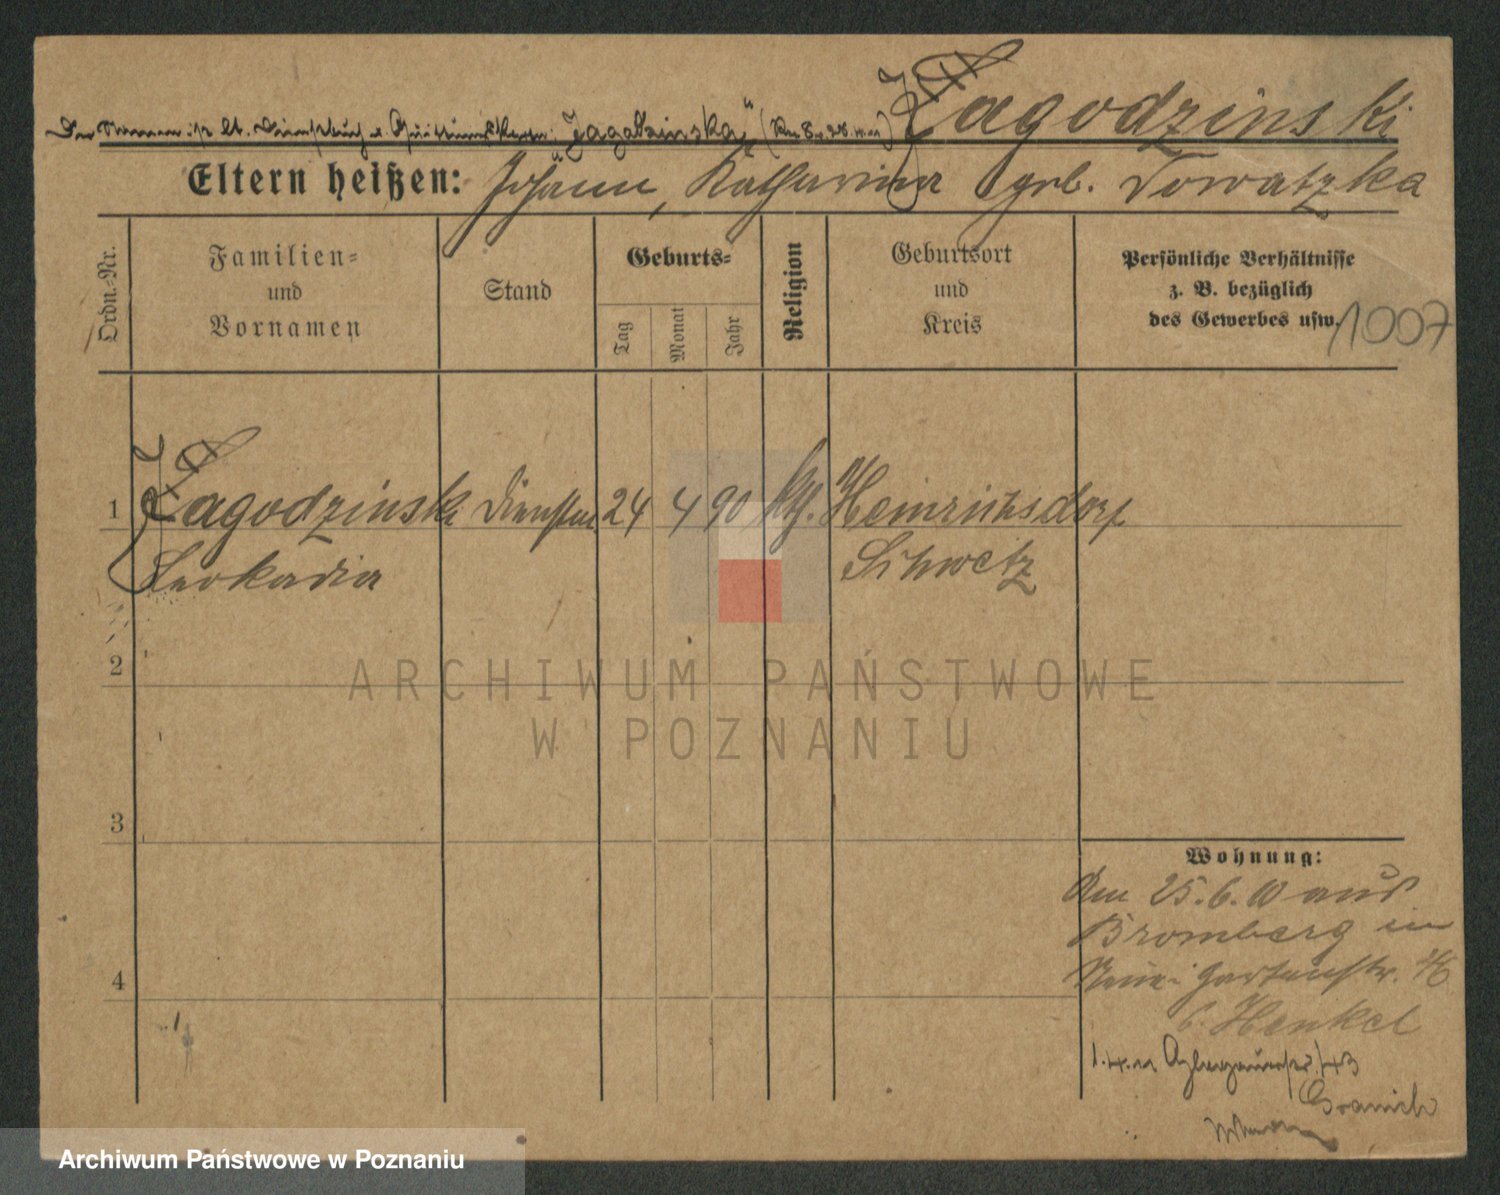 Jagodzinski
Der Namen ist lt. Dienstbuch u. Quittungskarte: "Jagodzinska"
Eltern heißen: Johann, Katharina geb. Nowatzka
Ordn.-Nr.
Familien=
und
Vornamen
Stand
Geburts=
Tag
Monat
Jahr
Religion
Geburtsort
und
Kreis
Persönliche Verhältnisse
z. B. bezüglich
des Gewerbes usw.
1007
1 Jagodzinska 24 4 90 kth. Heinrichsdorf
Leokadia Schwetz
2
3
4
Wohnung:
Am 25.6.10 aus
Bromberg in
Neue Gartenstr.
b. Henkel
1.4.11
ARCHIWUM PAŃSTWOWE
W POZNANIU
Archiwum Państwowe w Poznaniu